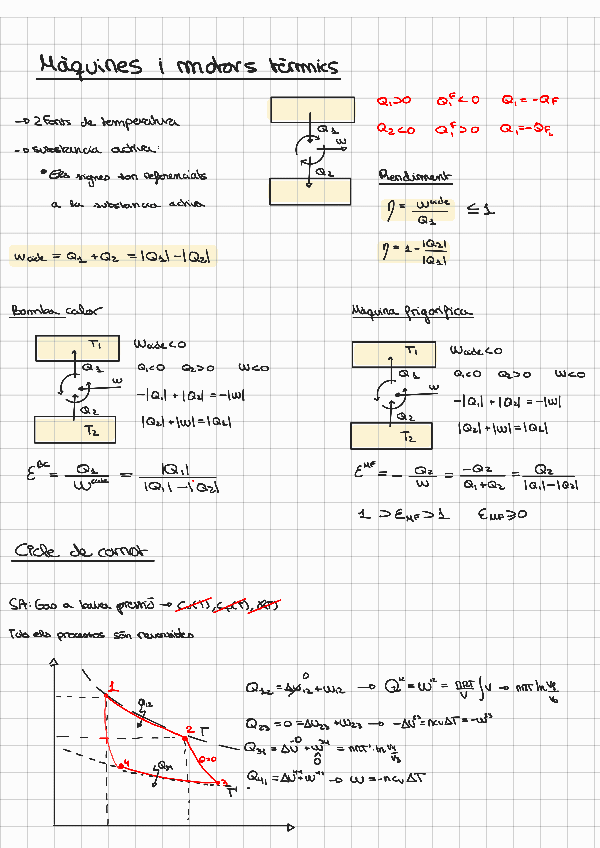 Màquines i motors tèrmics
→ 2 Fonts de temperatura
→ substància activa:
• Els signes son referenciats
a la substancia activa
Q1
W
Q2
Q1>0 Q1F<0 Q1=-QF
Q2<0 Q1F>0 Q1=-QF2
Rendiment
η = Wcicle/Q1 ≤ 1
η = 1 - |Q2|/|Q1|
Wcicle = Q1 + Q2 = |Q1| - |Q2|
Bomba calor
T1
Q1
W
Q2
T2
Wcicle<0
Q1<0 Q2>0 W<0
-|Q1| + |Q2| = -|W|
|Q2| + |W| = |Q1|
εBC = Q1/Wcicle = |Q1|/(|Q1| - |Q2|)
Màquina frigorífica
T1
Q1
W
Q2
T2
Wcicle<0
Q1<0 Q2>0 W<0
-|Q1| + |Q2| = -|W|
|Q2| + |W| = |Q1|
εMF = - Q2/W = -Q2/(Q1+Q2) = Q2/(|Q1| - |Q2|)
1 > εMF > 1 εMF ≥ 0
Cicle de carnot
SA: Gas a baixa pressió →
Tots els processos són reversibles
1
Q12
2 T
Q=0
4
Q34
3
T'
Q12 = ΔU12 + W12 → Q12 = W12 = nRT/V ∫V → nRT ln
0
Q23 = 0 = ΔU23 + W23 → -ΔU23 = ncvΔT = -W23
Q34 = ΔU + W34 = nRT' ln V4/V3
0
Q41 = ΔU41 + W41 → W = -ncvΔT